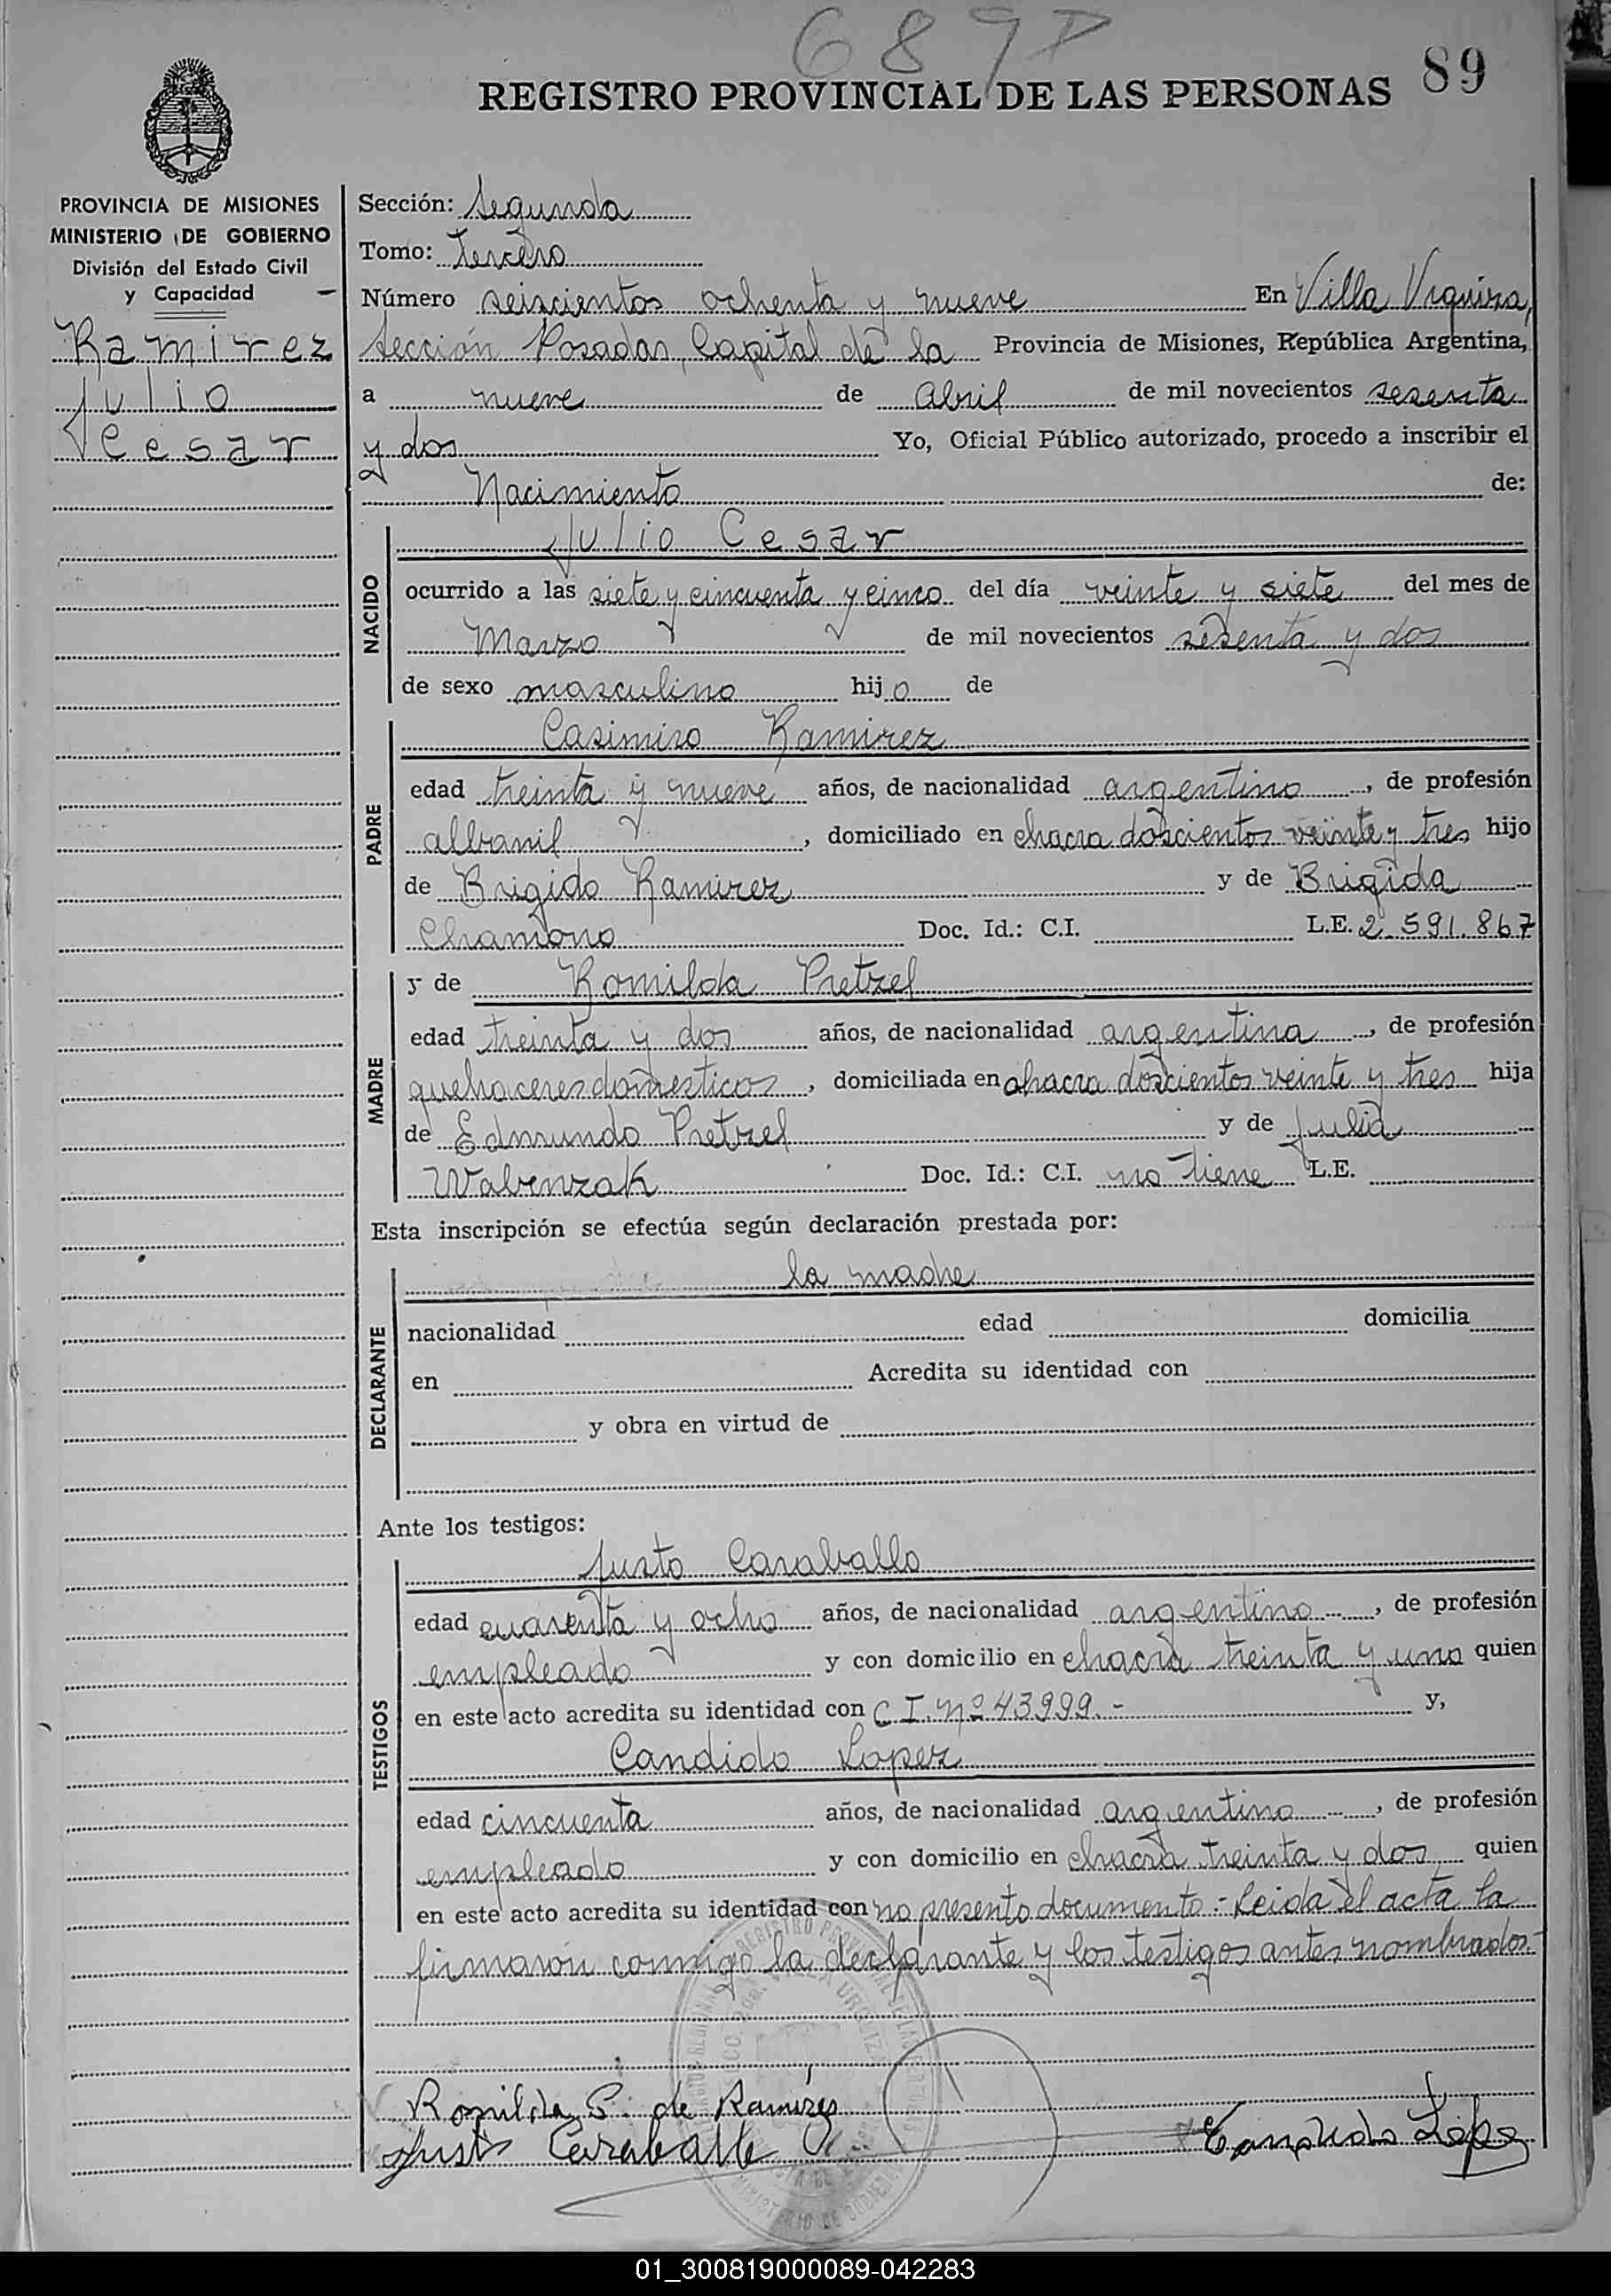 689 D
REGISTRO PROVINCIAL DE LAS PERSONAS 89
PROVINCIA DE MISIONES
MINISTERIO DE GOBIERNO
División del Estado Civil
y Capacidad
Ramirez
Julio
Cesar
Sección: Segunda
Tomo: Tercero
Número seiscientos ochenta y nueve En Villa Urquiza,
Sección Posadas, Capital de la Provincia de Misiones, República Argentina,
a nueve de Abril de mil novecientos sesenta
y dos Yo, Oficial Público autorizado, procedo a inscribir el
Nacimiento de:
NACIDO
Julio Cesar
ocurrido a las siete y cincuenta y cinco del día veinte y siete del mes de
Marzo de mil novecientos sesenta y dos
de sexo masculino hijo de
PADRE
Casimiro Ramirez
edad treinta y nueve años, de nacionalidad argentino, de profesión
albanil, domiciliado en chacra doscientos veinte y tres hijo
de Brigido Ramirez y de Brigida
Chamono Doc. Id.: C.I. L.E. 2.591.867
MADRE
y de Romilda Pretzel
edad treinta y dos años, de nacionalidad argentina, de profesión
quehaceres domesticos, domiciliada en chacra doscientos veinte y tres hija
de Edmundo Pretzel y de Julia
Wabenzak Doc. Id.: C.I. no tiene L.E.
Esta inscripción se efectúa según declaración prestada por:
DECLARANTE
la madre
nacionalidad edad domicilia
en Acredita su identidad con
y obra en virtud de
Ante los testigos:
TESTIGOS
Justo Caraballo
edad cuarenta y ocho años, de nacionalidad argentino, de profesión
empleado y con domicilio en chacra treinta y uno quien
en este acto acredita su identidad con C I. Nº 43999.- y,
Candido Lopez
edad cincuenta años, de nacionalidad argentino, de profesión
empleado y con domicilio en chacra treinta y dos quien
en este acto acredita su identidad con no presento documento - Leida el acta la
firmaron conmigo la declarante y los testigos antes nombrados.-
Romilda P. de Ramires
Justo Caraballo Candido Lopez
01_300819000089-042283